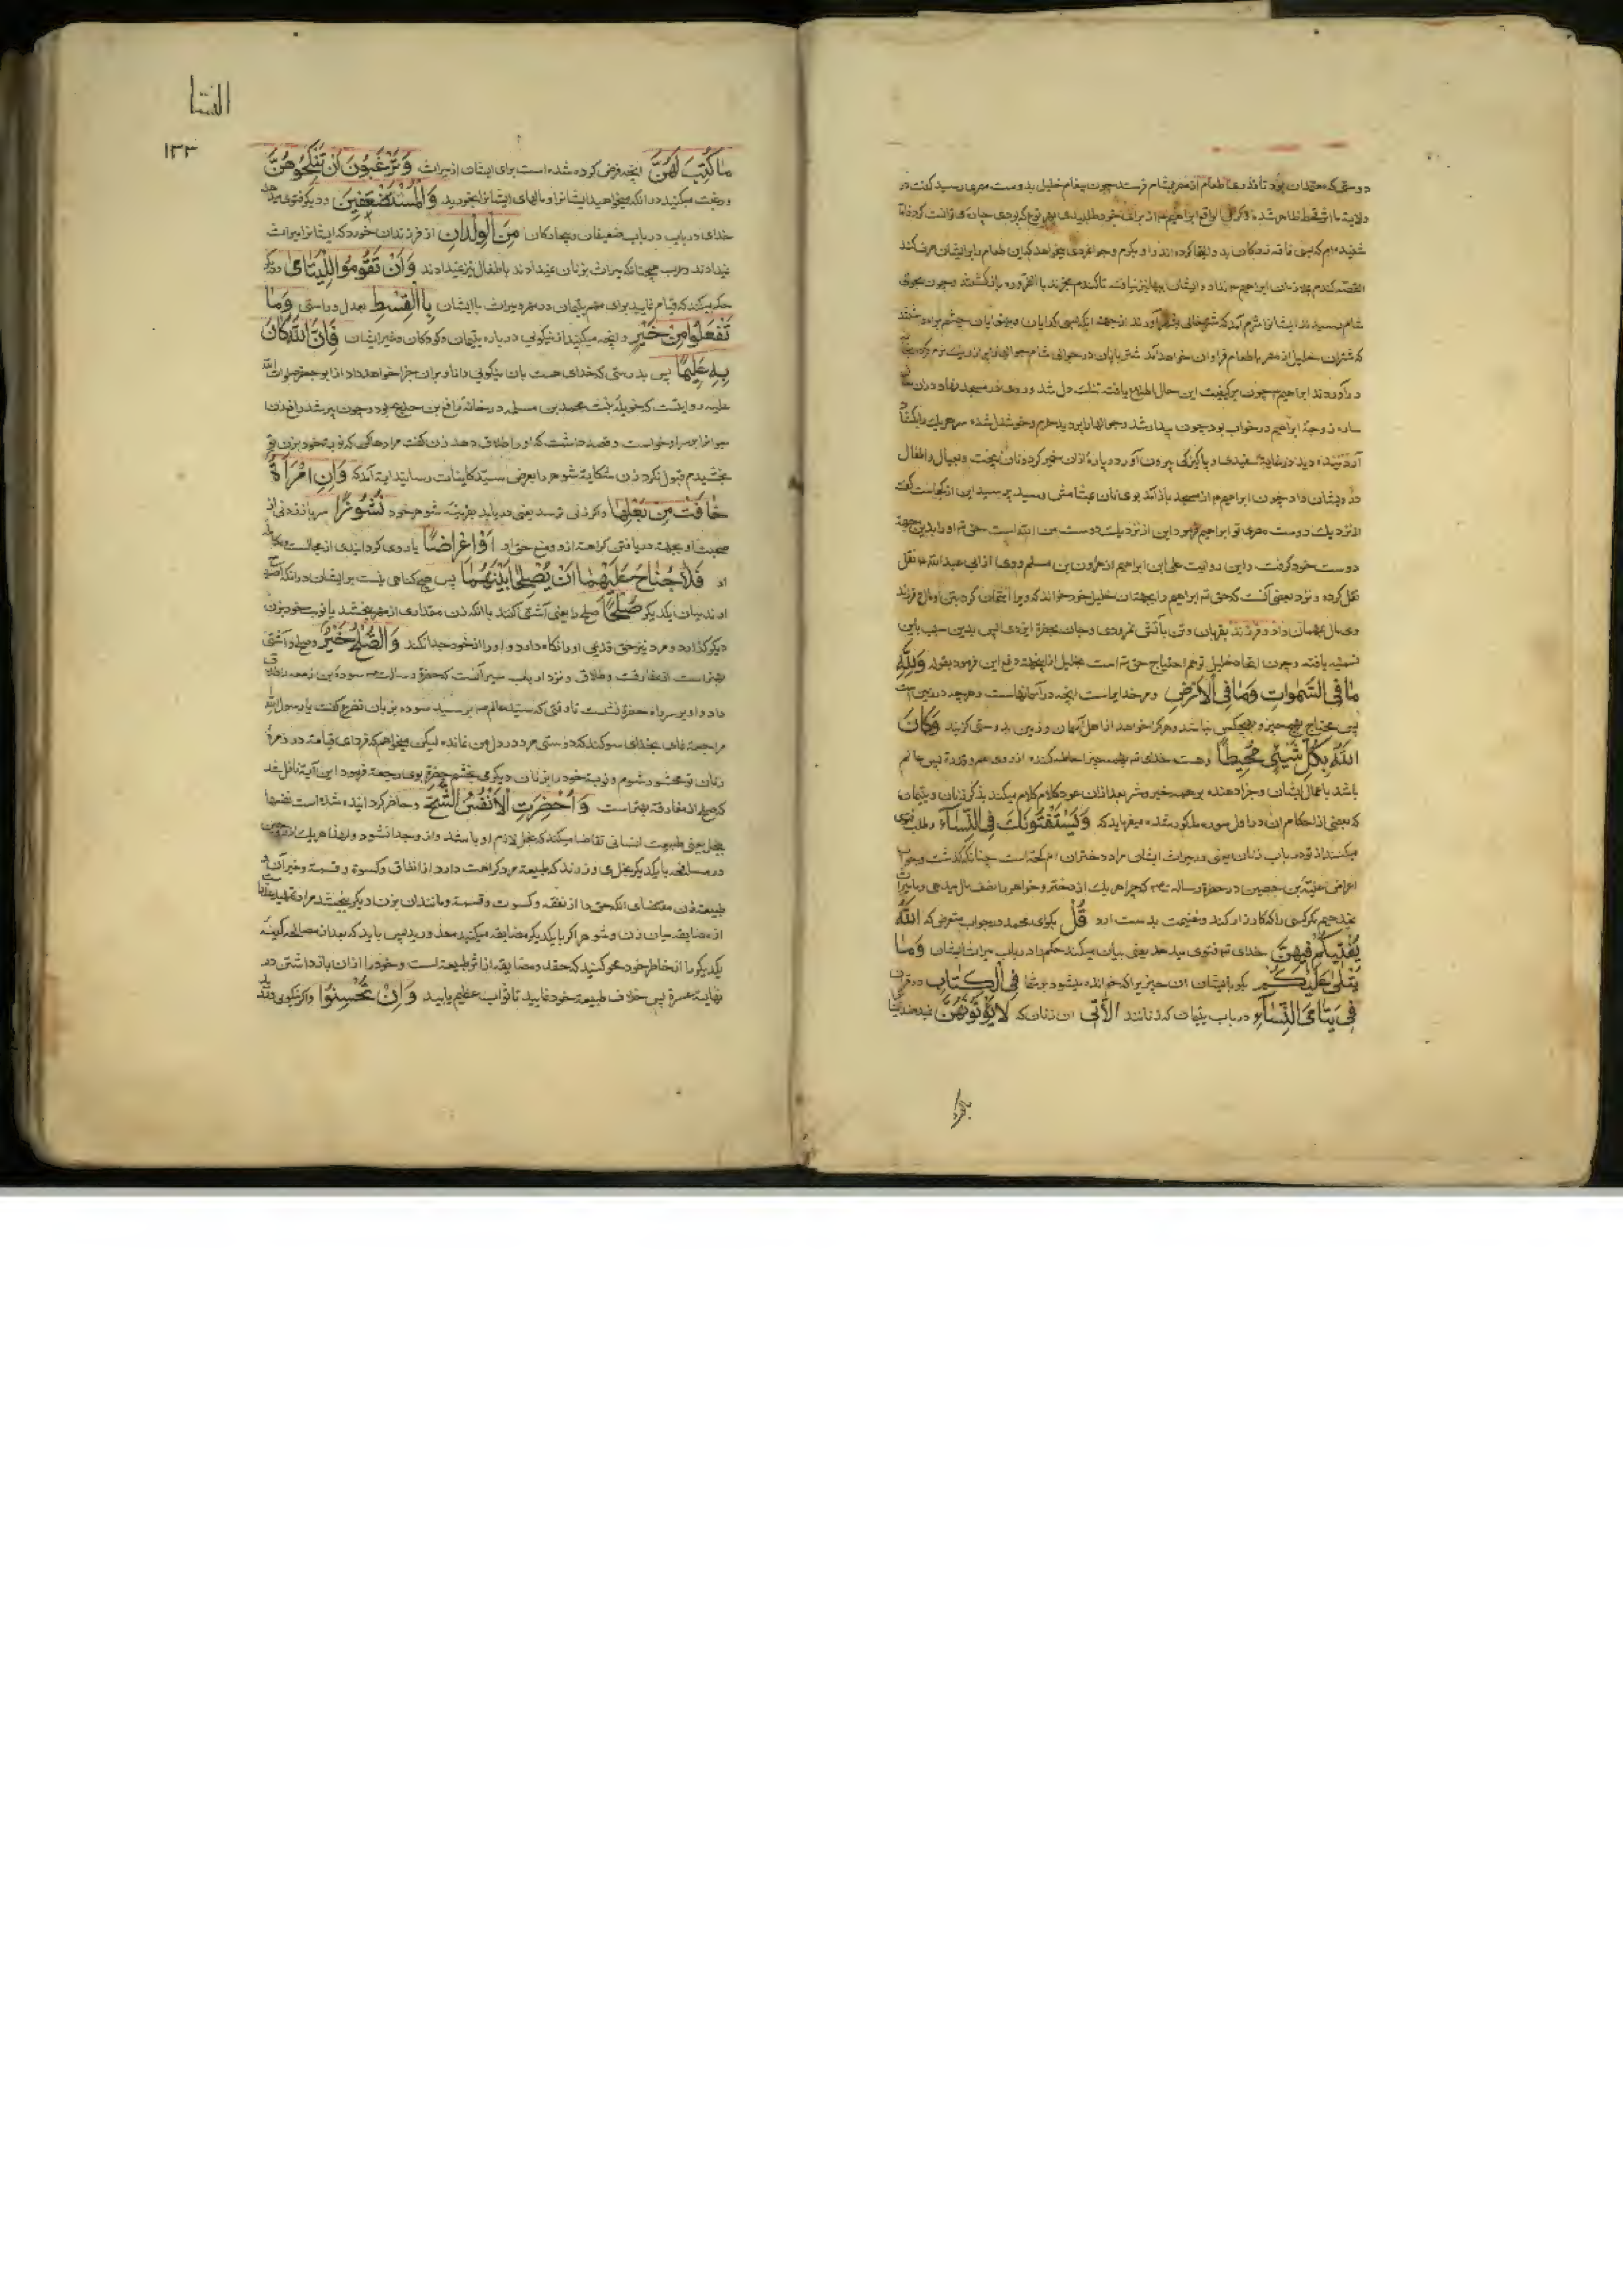 دوستی که همتدان بود تا قدری طعام از مصر بشام فرستد چون پیغام خلیل بدوست مصری رسید گفت در
ولایت ما اثر قحط ظاهر شده
شنیده ام که بسی فاقه زدگان بدو التجا کرده اند و او بکرم و جوانمردی میخواهد که این طعام را برایشان صرف کند
القصه کندم بفرزندان ابراهیم نداد و ایشان
شام رسیدند ایشانرا شرم آمد که شتر خالی بشهر آورند از جهة آنکه بسی کدایان و بینوایان چشم براه داشتند
که شتران خلیل از مصر با طعام فراوان خواهد آمد شتربانان در حوالی شام جوالها را از ریک نرم کرده
در آوردند ابراهیم چون بر کیفیت این حال اطلاع یافت تنک دل شد و روی در مسجد نهاد و در آن
ساره زوجهٔ ابراهیم در خواب بود چون بیدار شد و جوالها را پر دید خرم و خوشدل شده سر هر یک را بکشاد
آرد بیخته دید در غایة سفیدی و پاکیزکی بیرون آورد و پارهٔ از آن خمیر کرده نان بپخت و بعیال و اطفال
درویشان داد چون ابراهیم از مسجد باز آمد بوی نان بمشامش رسید پرسید این از کجاست گفت
از نزدیک دوست مصری تو ابراهیم فرمود این از نزدیک دوست من الله است حق تع او را بدین جهة
دوست خود گرفت و این روایت علی بن ابراهیم از هارون بن مسلم روی از ابی عبد الله ع نقل
نقل کرده و نزد بعضی آنست که حق تع ابراهیم را بجهة آن خلیل خود خواند که ویرا امتحان کرد بتن و مال و فرزند
وی مال بمهمان داد و فرزند بقربان و تن بآتش نمرودی و جان بحضرة ایزدی پس بدین سبب باین
تسمیه یافته و چون اتخاذ خلیل توهم احتیاج حق تع است بخلیل از اینجهت دفع این فرمود بقوله وَلِلّٰهِ
مَا فِی السَّمٰوَاتِ وَمَا فِی الْاَرْضِ و مر خدایراست آنچه در آسمانهاست و هر چه در زمین است
پس محتاج بهیچ چیز و هیچکس نباشد و هر کرا خواهد از اهل آسمان و زمین بدوستی کزیند وَکَانَ
اللّٰهُ بِکُلِّ شَیْءٍ مُحِیطاً و هست خدای تع بهمه چیز احاطه کننده از روی علم و قدرة پس عالم
باشد باعمال ایشان و جزا دهنده بر همه خیر و شر بعد از آن عود کلام میکند بذکر زنان و یتیمان
که بعضی از احکام آن در اول سوره مذکور شده میفرماید که وَیَسْتَفْتُونَکَ فِی النِّسَآءِ و طلب فتوی
میکنند از تو در باب زنان یعنی در میراث ایشان مراد دختران ام کحه است چنانکه گذشت و جواب
اعراض عیینة بن حصین در حضرة رساله ص که چرا هر یک از دختر و خواهر را نصف مال میدهی و ما میراث
نمیدهیم مکر کسی را که کارزار کند و غنیمت بدست ارد قُلْ بکوای محمد در جواب متعرض که اللّٰهُ
یُفْتِیکُمْ فِیهِنَّ خدای تع فتوی میدهد یعنی بیان میکند حکم او در باب میراث ایشان وَمَا
یُتْلٰی عَلَیْکُمْ بکو با ایشان ان چیز یرا که خوانده میشود بر شما فِی الْکِتَابِ در قرآن
فِی یَتَامَی النِّسَآءِ در باب یتیمان که زنانند اَلَّاتِی ان زنان که لَا تُؤْتُونَهُنَّ نمیدهند ایشانرا
النسا
۱۳۳
مَا کُتِبَ لَهُنَّ انچه فرض کرده شده است برای ایشان از میراث وَتَرْغَبُونَ اَنْ تَنْکِحُوهُنَّ
و رغبت میکنید در انکه میخواهید ایشانرا و مالهای ایشانرا بخورید وَالْمُسْتَضْعَفِینَ و دیکر فتوی میدهد
خدای در باب ضعیفان و بیچارکان مِنَ الْوِلْدَانِ از فرزندان خورد که ایشانرا میراث
نمیدادند و عرب همچنانکه میراث بزنان نمیدادند باطفال نیز نمیدادند وَاَنْ تَقُومُوا لِلْیَتَامٰی و دیکر
حکم میکند که قیام نمایید برای مهر یتیمان و در مهر و میراث با ایشان بِالْقِسْطِ بعدل و راستی وَمَا
تَفْعَلُوا مِنْ خَیْرٍ و انچه میکنید از نیکویی در باره یتیمان و کودکان و غیر ایشان فَاِنَّ اللّٰهَ کَانَ
بِهٖ عَلِیماً پس بدرستی که خدای هست بان نیکویی دانا و بران جزا خواهد داد از ابو جعفر صلوات الله
علیه روایتست که خویله بنت محمد بن مسلمه در خانهٔ رافع بن خدیج بود و چون پیر شد رافع زن
جوانرا بر سر او خواست و قصد داشت که او را طلاق دهد زن گفت مرا رها کن که نوبه خود بزن تو
بخشیدم قبول نکرد زن شکایة شوهر را بعرض سید کاینات رسانید ایة آمد که وَاِنِ امْرَاَةٌ
خَافَتْ مِنْ بَعْلِهَا و اکر زنی ترسد یعنی دریابد بقرینه شوهر خود نُشُوزاً سر باز زدنی از
صحبت او بجهة دریافتی کراهة از او و منع حق او اَوْ اِعْرَاضاً یا روی کردانیدی از مجالست و مکالمه
او فَلَا جُنَاحَ عَلَیْهِمَا اَنْ یُصْلِحَا بَیْنَهُمَا پس هیچ کناهی نیست بر ایشان در انکه اصلاح
اورند میان یکدیکر صُلْحاً صلح را یعنی آشتی کنند با انکه زن مقداری از مهر ببخشد یا نوبت خود بزن
دیکر کذارد و مرد نیز حق قدیمی او را نکاه دارد و او را از خود جدا نکند وَالصُّلْحُ خَیْرٌ و صلح و آشتی
بهتر است از مفارقت و طلاق و نزد ارباب سیر آنست که حضرة رسالت ص سوده بن زمعه را طلاق
داد و او بر سر راه حضرة نشست تا وقتی که سید عالم ص برسید سوده بزبان تضرع گفت یا رسول الله
مراجعة نمای بخدای سوکند که دوستی مرد در دل من نمانده لیکن میخواهم که فردای قیامة در زمرهٔ
زنان تو محشور شوم و نوبة خود را بزنان دیکر می بخشم حضرة بوی رجعة فرمود این آیة نازل شد
که صلح از مفارقة بهتر است وَاُحْضِرَتِ الْاَنْفُسُ الشُّحَّ و حاضر کردانیده شده است نفسها
ببخل یعنی طبیعت انسانی تقاضا میکند که بخل لازم او باشد و از او جدا نشود و لهذا هر یک از زوجین
در مسالحه با یکدیکر بخل می ورزند که طبیعة مرد کراهت دارد از انفاق و کسوة و قسمة و غیر آن و
طبیعة زن مقتضای انکه حق را از نفقه و کسوت و قسمة و مانند ان بزن دیکر نبخشد مراد تمهید عذر
از مضایقه میان زن و شوهر اکر با یکدیکر مضایقه میکنید معذورید پس باید که بعد از مصالحه کینه
یکدیکر را از خاطر خود محو کنید که حقد و مضایقه از اثر طبیعة است و خود را از ان باز داشتن در
نهایة عسرة پس خلاف طبیعة خود نمایید تا ثواب عظیم یابید وَاِنْ تُحْسِنُوا و اکر نیکویی ورزید